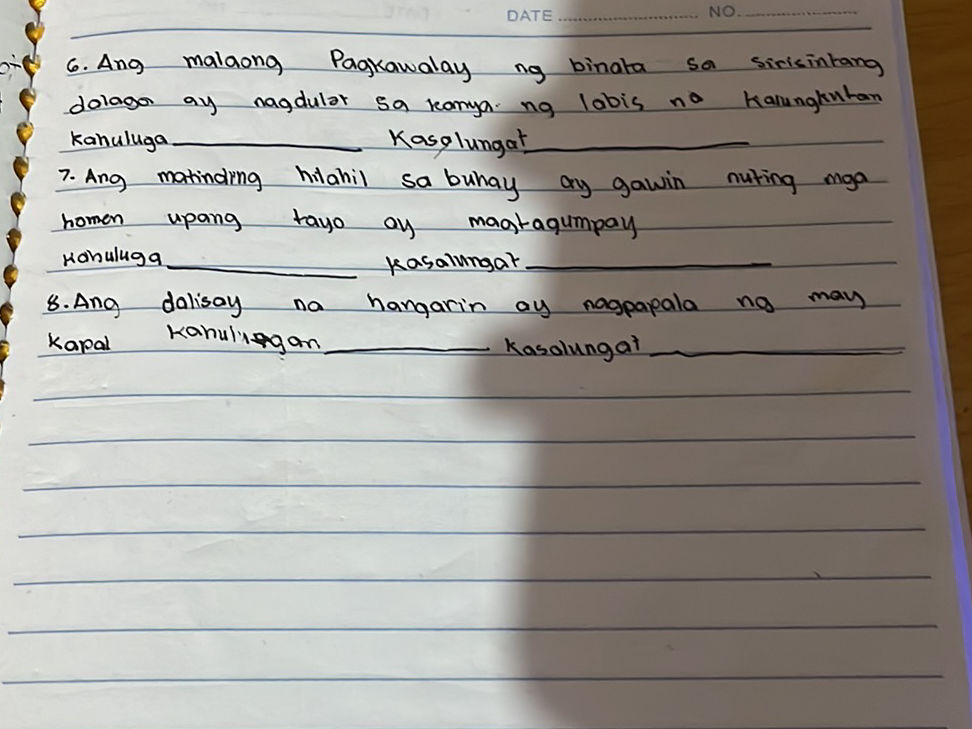 DATE ........................ NO. ........................
6. Ang malaong Pagkawalay ng binata sa sirisintang
dalaga ay nagdulot sa kanya. ng labis na Kalungkutan
Kahuluga____________ Kasalungat____________
7. Ang matinding hilahil sa buhay ay gawin nuting mga
homon upang tayo ay magtagumpay
Kahuluga____________ Kasalungat____________
8. Ang dalisay na hangarin ay nagpapala ng may
Kapal Kahulugan____________ Kasalungat____________